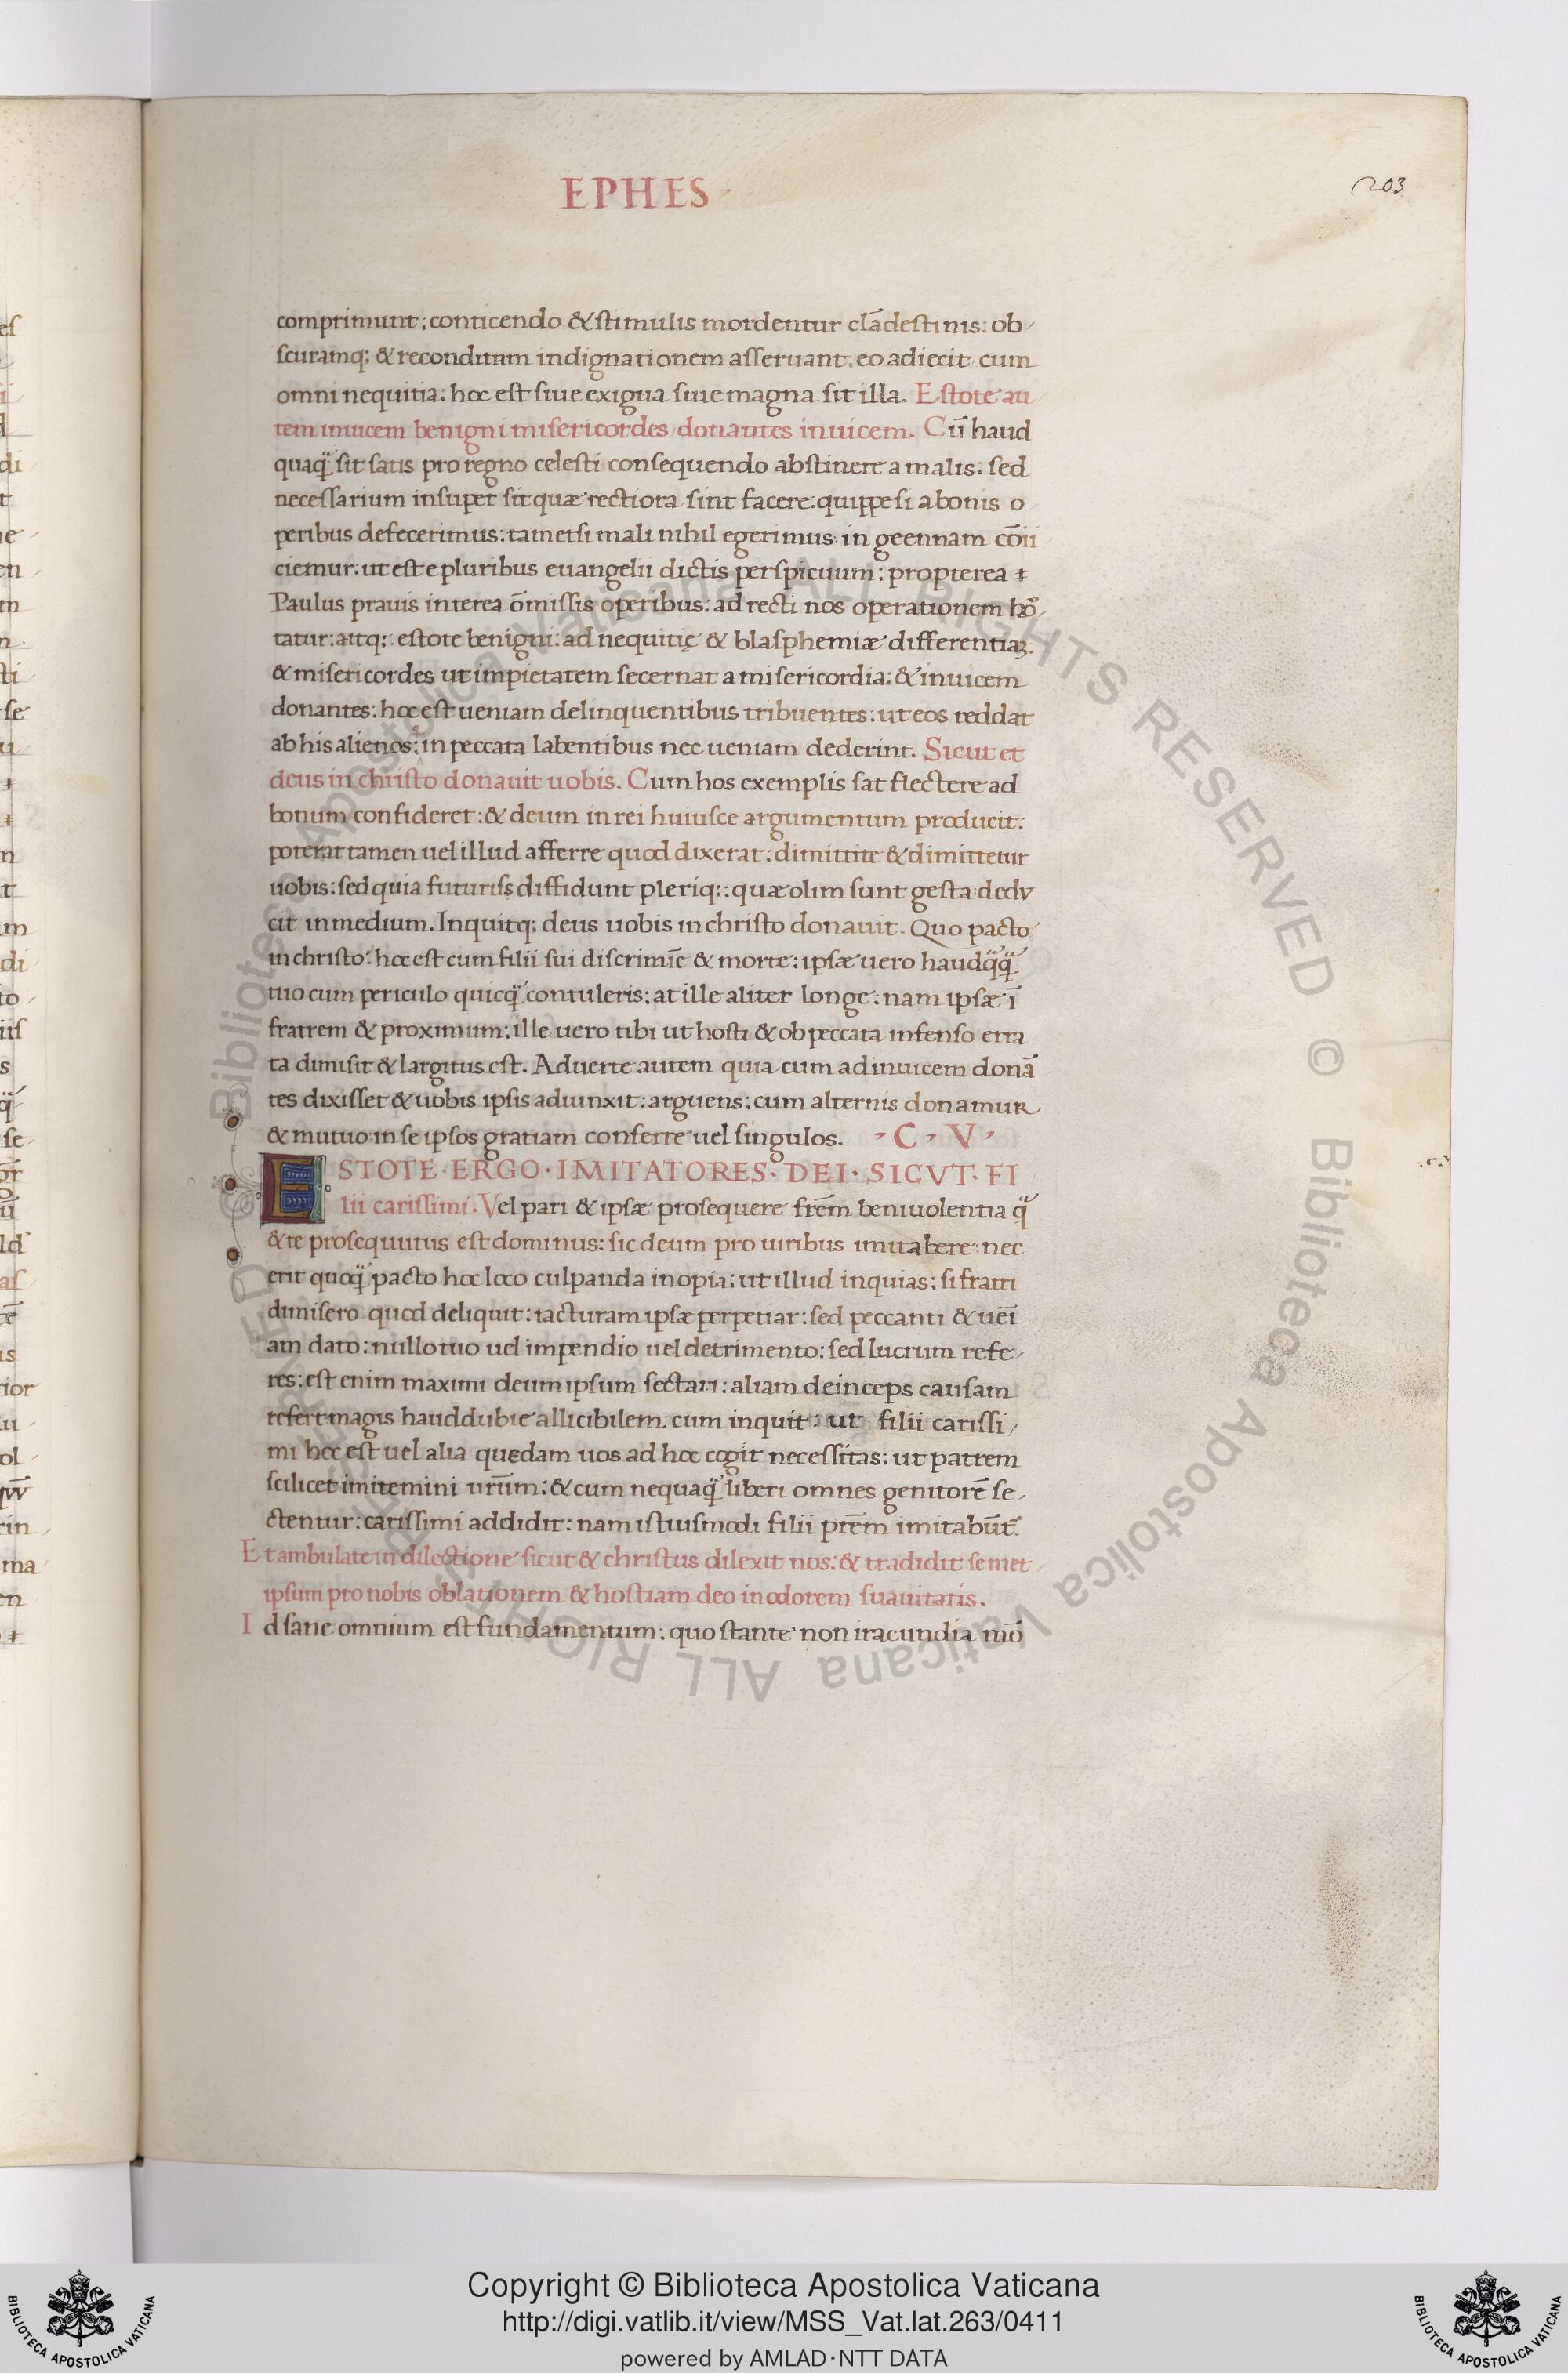 EPHES
203
comprimunt: conticendo & stimulis mordentur clādestinis: ob
scuramq; & reconditam indignationem asseruant. eo adiecit cum
omni nequitia: hoc est siue exigua siue magna sit illa. Estote au
tem inuicem benigni misericordes donantes inuicem. Cū haud
quaq̃ sit satis pro regno celesti consequendo abstinere a malis: sed
necessarium insuper sit quæ rectiora sint facere: quippe si a bonis o
peribus defecerimus: tametsi mali nihil egerimus in geennam cōii
ciemur: ut est e pluribus euangelii dictis perspicuum: propterea
Paulus prauis interea ōmissis operibus: ad recti nos operationem
tatur: aitq;: estote benigni: ad nequitię & blasphemiæ differentiaꝫ.
& misericordes ut impietatem secernat a misericordia: & inuicem
donantes: hoc est ueniam delinquentibus tribuentes: ut eos reddat
ab his alienos: in peccata labentibus nec ueniam dederint. Sicut et
deus in christo donauit uobis. Cum hos exemplis sat flectere ad
bonum confideret: & deum in rei huiusce argumentum producit:
poterat tamen uel illud afferre quod dixerat: dimittite & dimittetur
uobis: sed quia futuris diffidunt pleriq;: quæ olim sunt gesta dedu
cit in medium. Inquitq; deus uobis in christo donauit. Quo pacto
in christo: hoc est cum filii sui discrimīe & morte: ipsæ uero haudq̃q̃
tuo cum periculo quicq̃ contuleris: at ille aliter longe: nam ipsæ ī
fratrem & proximum: ille uero tibi ut hosti & ob peccata infenso erra
ta dimisit & largitus est. Aduerte autem quia cum ad inuicem donā
tes dixisset & uobis ipsis adiunxit: arguens: cum alternis donamur
& mutuo in se ipsos gratiam conferre uel singulos. C. V
ESTOTE·ERGO·IMITATORES·DEI·SICVT·FI
lii carissimi. Vel pari & ipsæ prosequere frēm beniuolentia q̃
& te prosequutus est dominus: sic deum pro uiribus imitabere: nec
erit quoq̃ pacto hoc loco culpanda inopia: ut illud inquias: si fratri
dimisero quod deliquit: iacturam ipsæ perpetiar: sed peccanti & uēi
am dato: nullo tuo uel impendio uel detrimento: sed lucrum refe
res: est enim maximi deum ipsum sectari: aliam deinceps causam
refert magis hauddubie allicibilem. cum inquit: ut filii carissi
mi hoc est uel alia quedam uos ad hoc cogit necessitas: ut patrem
scilicet imitemini urūm: & cum nequaq̃ liberi omnes genitorē se
ctentur: carissimi addidit: nam istiusmodi filii prēm imitabūt.
Et ambulate in dilectione sicut & christus dilexit nos: & tradidit semet
ipsum pro nobis oblationem & hostiam deo in odorem suauitatis.
Id sane omnium est fundamentum: quo stante non iracundia mō
Copyright © Biblioteca Apostolica Vaticana
http://digi.vatlib.it/view/MSS_Vat.lat.263/0411
powered by AMLAD·NTT DATA